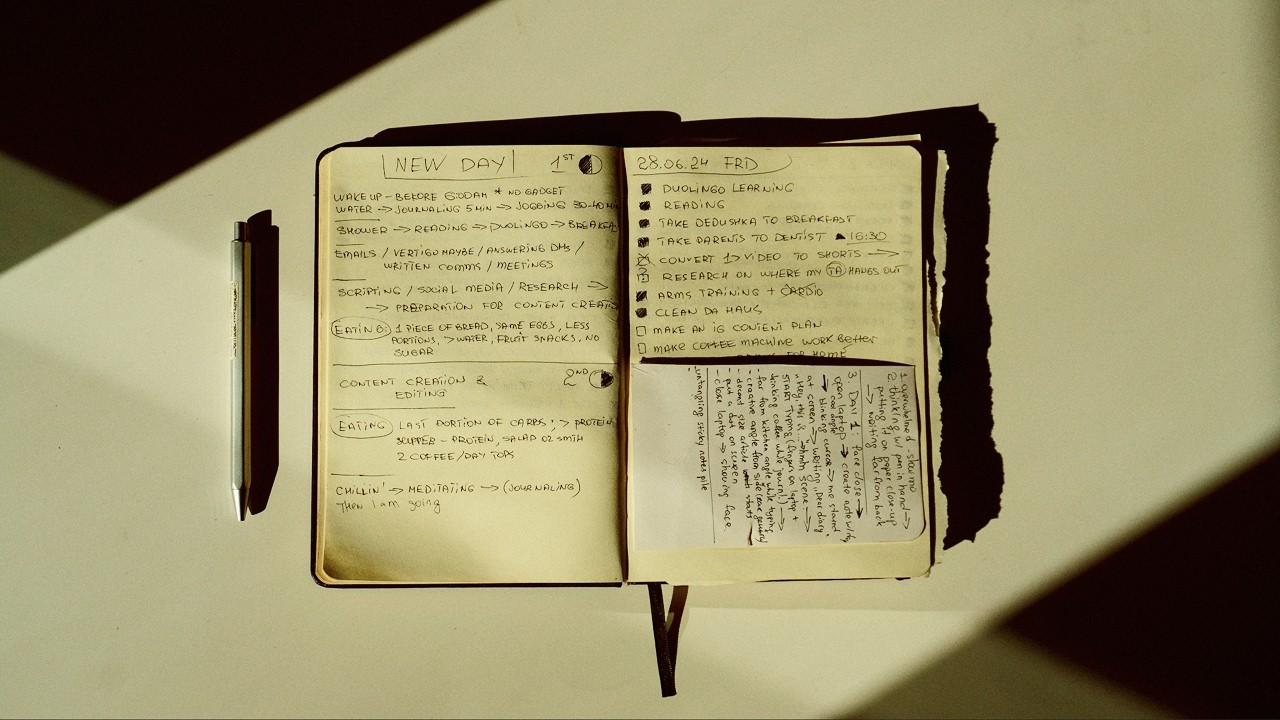 NEW DAY 1ST
WAKE UP - BEFORE * NO GADGET
WATER → JOURNALING 5 MIN → JOGGING 30-40 MIN
SHOWER → READING → DUOLINGO → BREAKFAS
EMAILS / VERTIGO MAYBE / ANSWERING DMs /
WRITTEN COMMS / MEETINGS
SCRIPTING / SOCIAL MEDIA / RESEARCH →
→ PREPARATION FOR CONTENT CREATIO
EATING: 1 PIECE OF BREAD, SAME EGGS, LESS
PORTIONS, > WATER, FRUIT SNACKS, NO
SUGAR
CONTENT CREATION & 2ND
EDITING
EATING LAST PORTION OF CARBS, > PROTEIN
SUPPER - PROTEIN, SALAD OZ SMTH
2 COFFEE/DAY TOPS
CHILLIN' → MEDITATING → (JOURNALING)
THEN I am going
28.06.24 FRD
DUOLINGO LEARNING
READING
TAKE DEDUSHKA TO BREAKFAST
TAKE PARENTS TO DENTIST 16:30
CONVERT 1> VIDEO TO SHORTS →
RESEARCH ON WHERE MY TA HANGS OUT
ARMS TRAINING + CARDIO
CLEAN DA HAUS
MAKE AN IG CONTENT PLAN
MAKE COFFEE MACHINE WORK better
FOR HOME
1 overwhelmed - show mo
2 thinking w/ pen in hand →
putting it on paper close-up
→ writing far from back
3. DAY 1: face close →
open laptop → create note w/
cool angle
→ blinking cursor → me stand
at screen → writing "Dear diary
"Hey, this is → hmh scene →
START TYPING (fingers on laptop +
drinking coffee while journ) →
far from kitchen angle while typing
- creative angle from side
- decent size article
- put a dot on screen
- close laptop → showing face.
untangling sticky notes pile